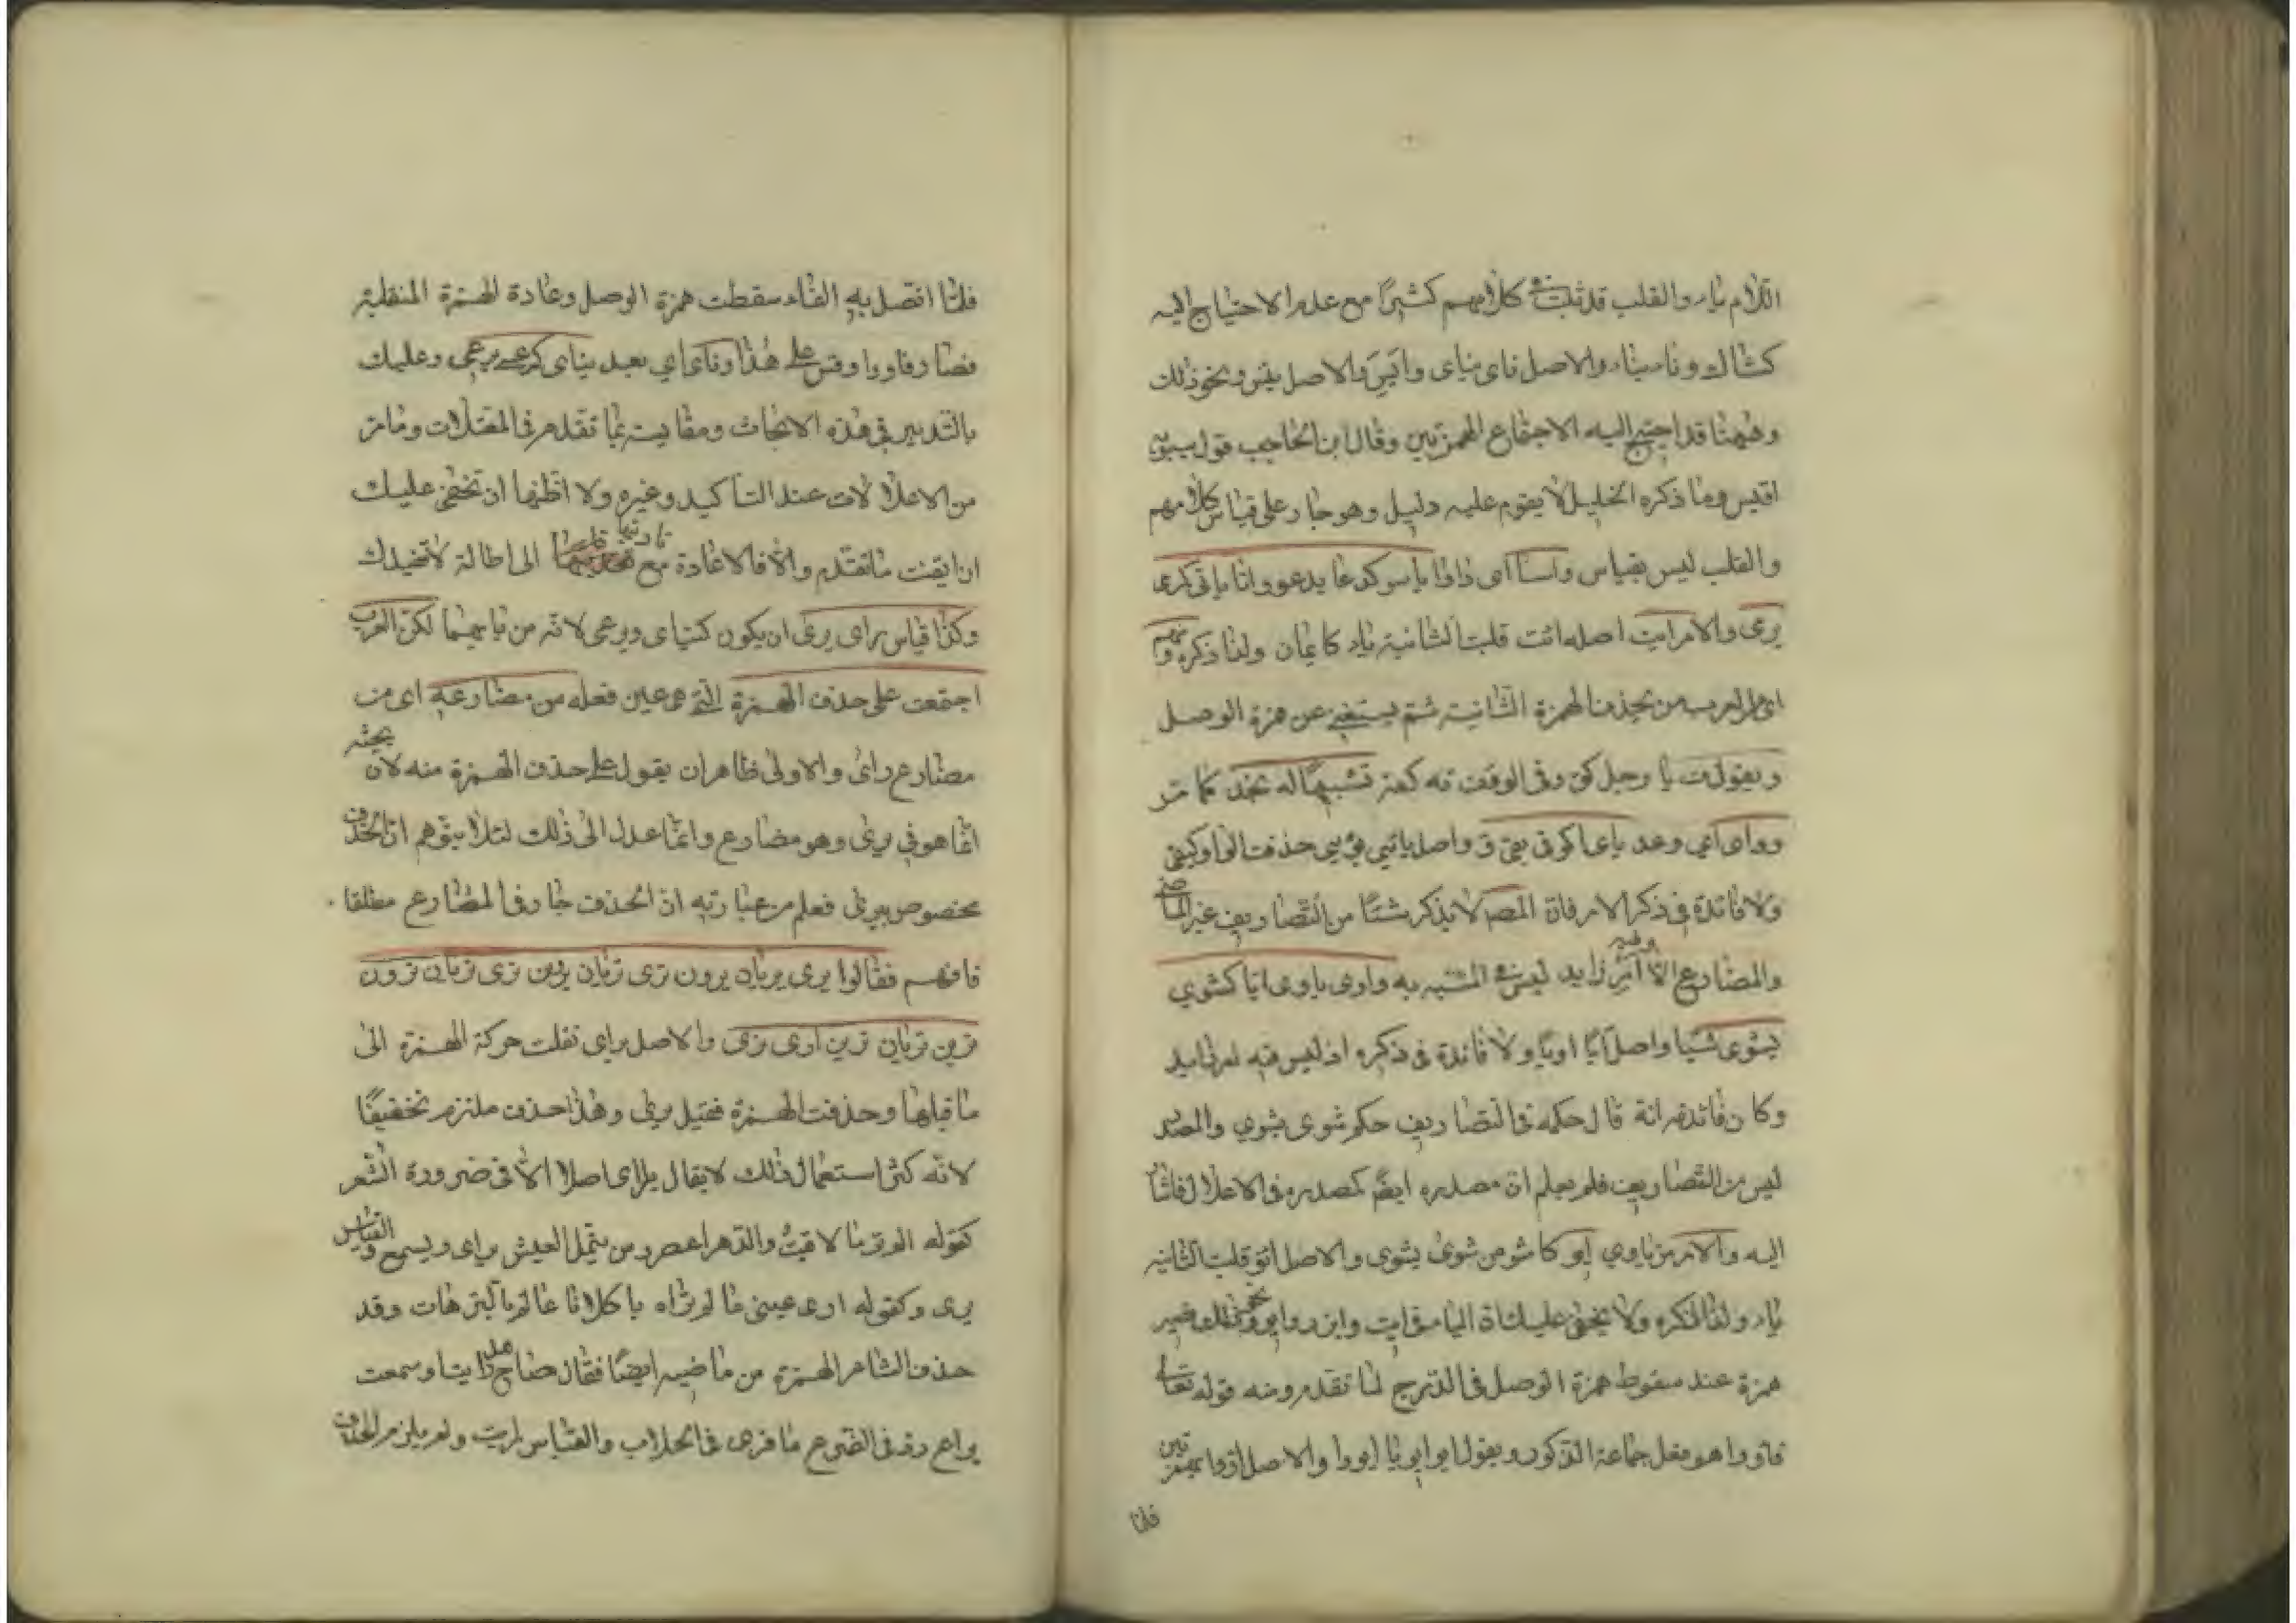 اللام ياء والقلب قد ثبت في كلامهم كثيرًا مع عدم الاحتياج اليه
كشاك وناء يناء والاصل ناى يناى وايس والاصل يئس ونحو ذلك
وهيهنا قد احتيج اليه الاجتماع الهمزتين وقال ابن الحاجب قول سيبويه
اقيس وما ذكره الخليل لا يقوم عليه دليل وهو جار على قياس كلامهم
والقلب ليس بقياس واسا اى داوا ياسو كدعا يدعو واتا ياتى كرى
يرمى والامر ايت اصله ائت قلبت الثانية ياء كايمان ولذا ذكره ومنهم
اى من العرب من يحذف الهمزة الثانية ثم يستغنى عن همزة الوصل
ويقول ت يا رجل كق وفى الوقف ته كقه تشبيها له بخذ كما مر
وواى اي وعد ياى كوقى يقى ق واصل يائى يوئى حذفت الواو كيقى
ولا فائدة فى ذكر الامر فان المص لا يذكر شيئا من التصاريف غير الماضى
والمضارع الا وفيه امر زايد ليس فى المشبه به واوى ياوى ايا كشوى
يشوى شيا واصل ايا اويا ولا فائدة فى ذكره اذ ليس فيه امر زايد
وكان فائدته انه قال حكمه فى التصاريف حكم شوى يشوي والمصدر
ليس من التصاريف فلم يعلم ان مصدره ايضا كمصدره فى الاعلال فاشار
اليه والامر من ياوي ايو كاشو من شوى يشوى والاصل ائو قلبت الثانيه
ياء ولذا ذكره ولا يخفى عليك ان الياء فى ايت وايزر وايو ونحو ذلك تصير
همزة عند سقوط همزة الوصل فى الدرج لما تقدم ومنه قوله تعالى
فاووا هو فعل جماعة الذكور ويقول ايو ايويا ايووا والاصل ائووا بهمزتين
فلما
فلما اتصل به الفاء سقطت همزة الوصل وعادة الهمزة المنقلبة
فصار فاووا وقس على هذا وناى اي بعد يناى كرعى يرعى وعليك
بالتدبير فى هذه الابحاث ومقايسته بما تقدم فى المعتلات وما مر
من الاعلالات عند التاكيد وغيره ولا اظنها ان تخفى عليك
ان ايقنت ما تقدم والا فالاعادة مع تاديتها الى اطالة لا تفيدك
وكذا قياس راى يرى ان يكون كيناى ويرعى لانه من بابهما لكن العرب
اجتمعت على حذف الهمزة التى هى عين فعله من مضارعه اى من
مضارع راى والاولى ظاهر ان يقول على حذف الهمزة منه لان بحثه
انما هو فى يرى وهو مضارع وانما عدل الى ذلك لئلا يتوهم ان الحذف
مخصوص بيرى فعلم من عبارته ان الحذف جار فى المضارع مطلقا
فافهم فقالوا يرى يريان يرون ترى تريان يرين ترى تريان ترون
ترين تريان ترين ارى نرى والاصل يراى نقلت حركة الهمزة الى
ما قبلها وحذفت الهمزة فقيل يرى وهذا حذف ملتزم تخفيفًا
لانه كثر استعمال ذلك لا يقال يراى اصلا الا فى ضرورة الشعر
كقوله الم تر ما لاقيت والدهر اعصر ومن يتمل العيش يراى ويسمع والقياس
يرى وكقوله ارى عينى ما لم تراه يا كلانا عالم بالترهات وقد
حذف الشاعر الهمزة من ماضيه ايضًا فقال صاح هل رايت او سمعت
براع رد فى الضرع ما قرى فى الحلاب والقياس رايت ولم يلزم الحذف